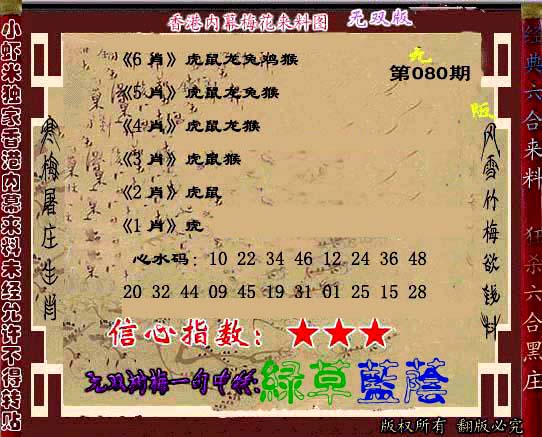 香港内幕梅花来料图 无双版
小虾米独家香港内幕来料未经允许不得转贴
经典六合来料 狂杀六合黑庄
寒梅屠庄生肖
风雪竹梅欲钱料
无
版
第080期
《6 肖》虎鼠龙兔鸡猴
《5 肖》虎鼠龙兔猴
《4 肖》虎鼠龙猴
《3 肖》虎鼠猴
《2 肖》虎鼠
《1 肖》虎
心水码: 10 22 34 46 12 24 36 48
20 32 44 09 45 19 31 01 25 15 28
信心指数: ★★★
无双剑梅一句中特:綠草藍蔭
版权所有 翻版必究